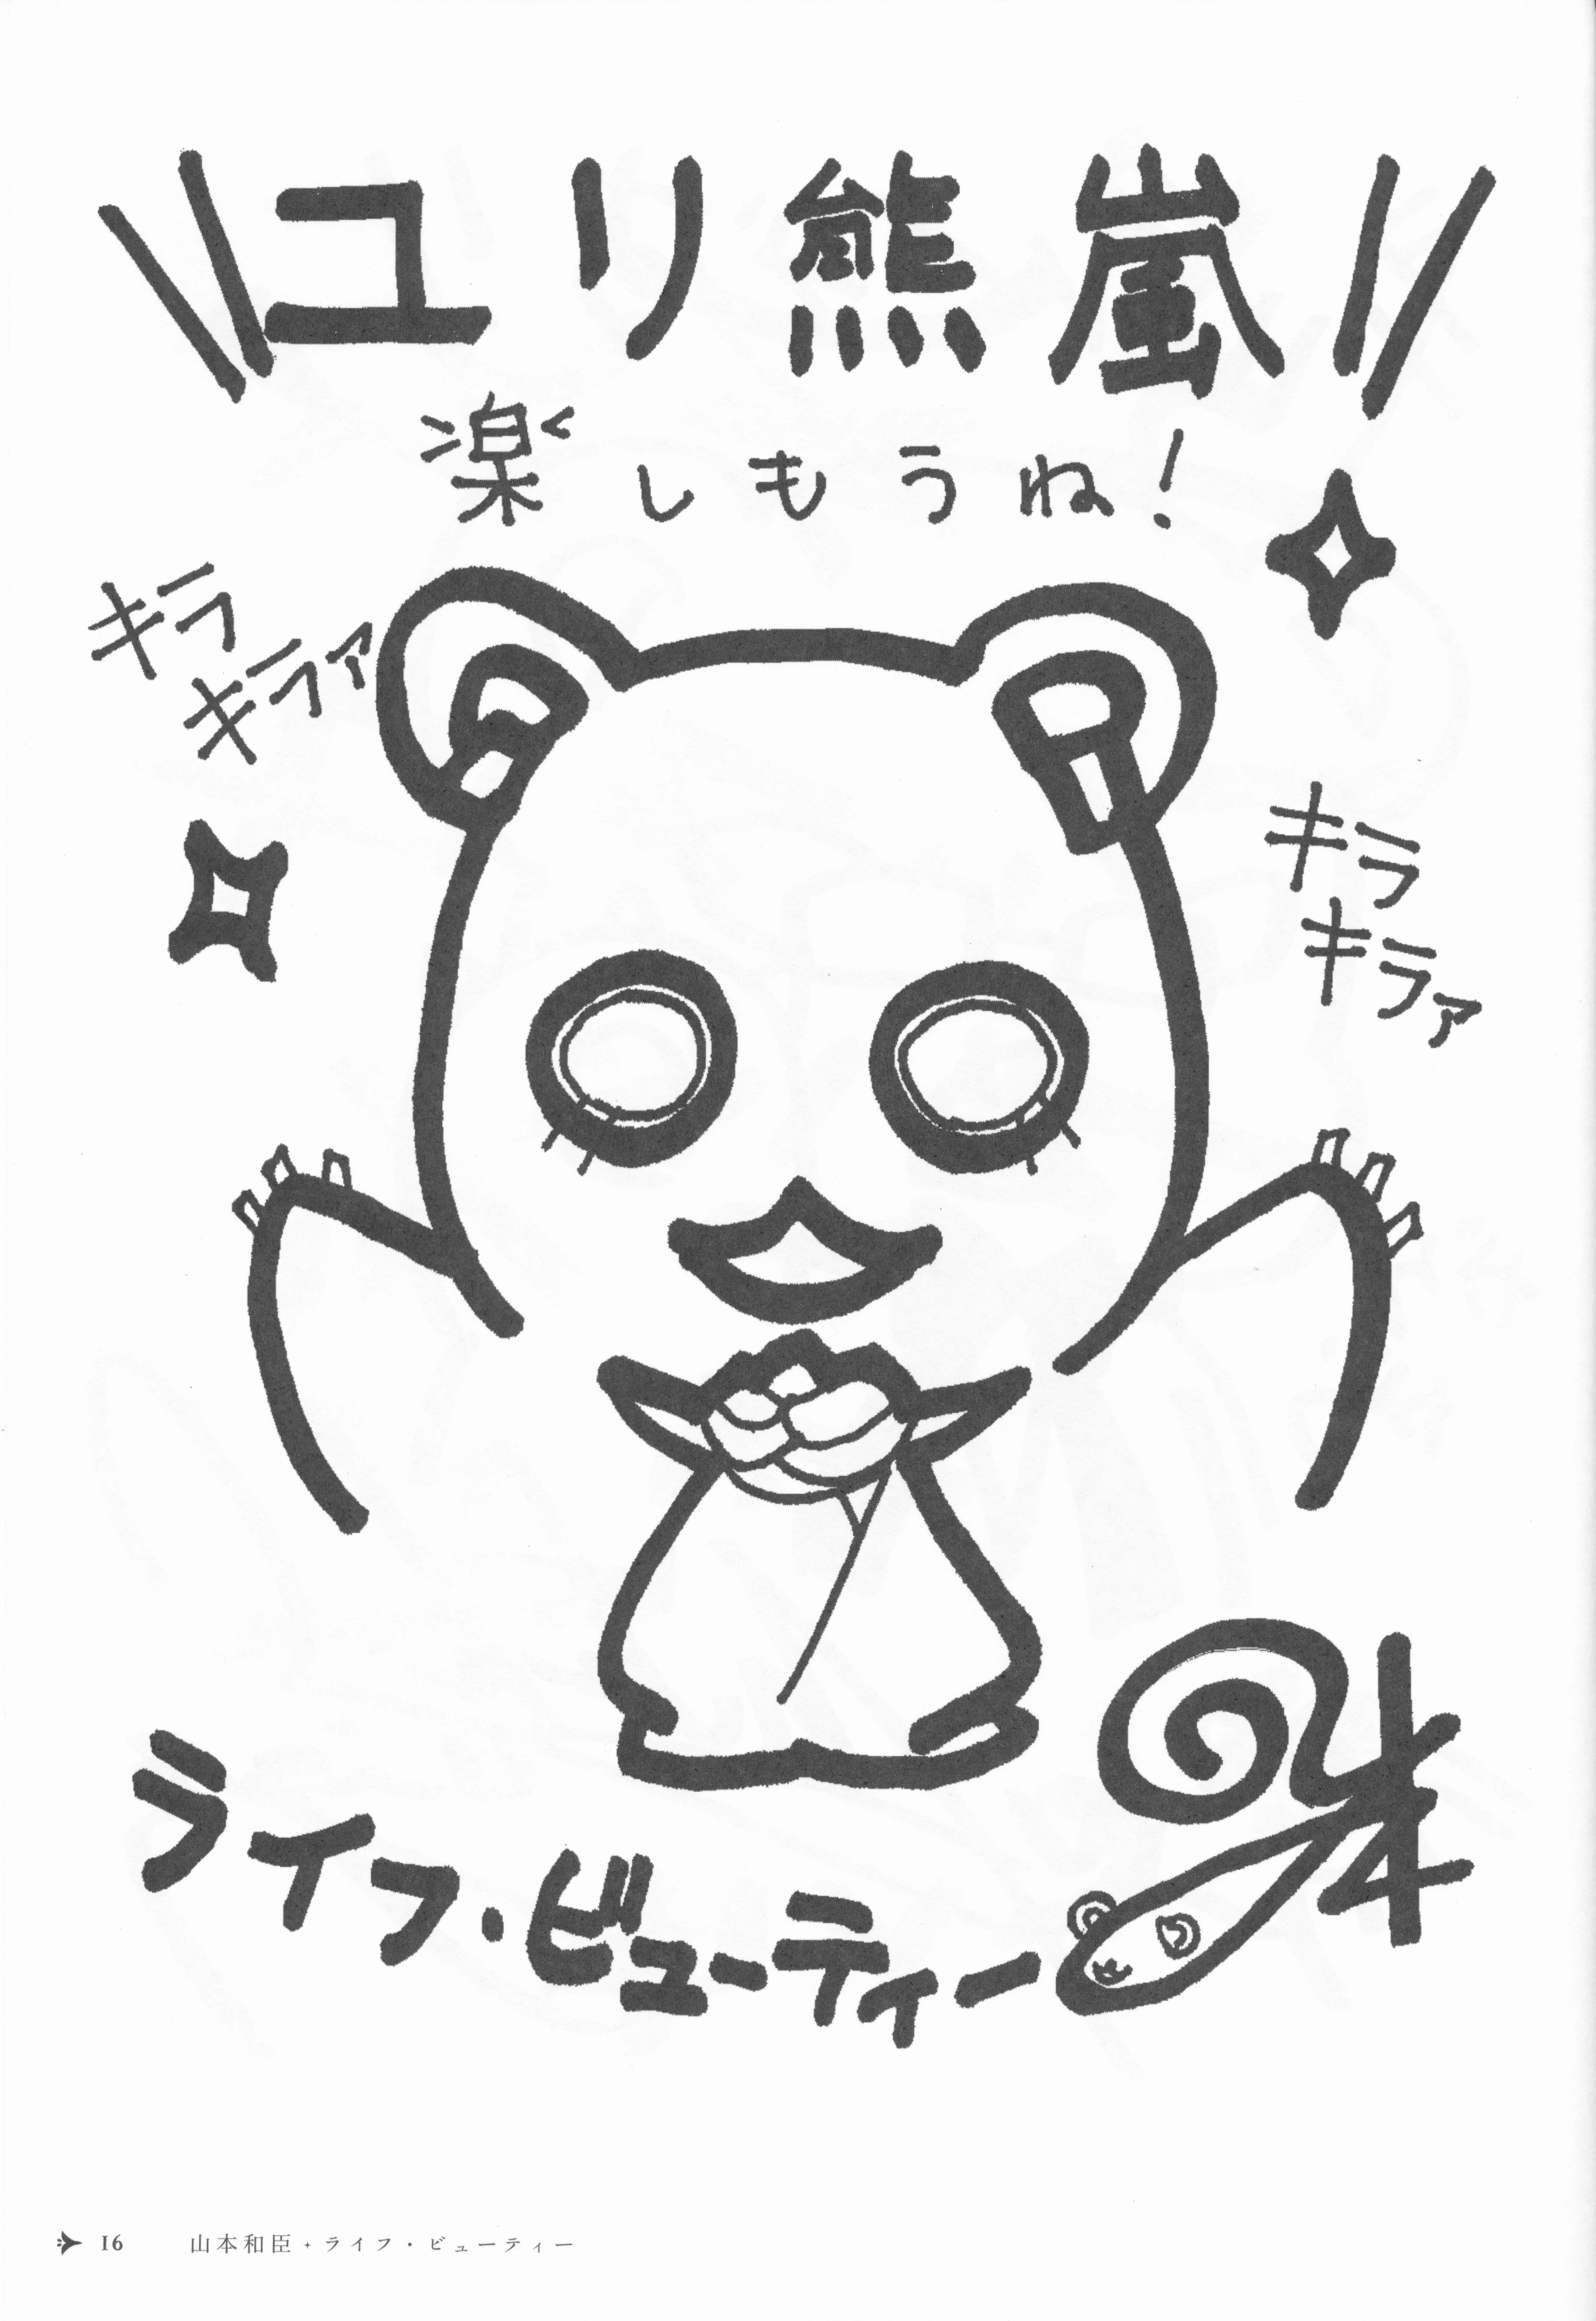 ユリ熊嵐
楽しもうね!
キラ
キラァ
キラ
キラァ
ライフ・ビューティー
16 山本和臣✦ライフ・ビューティー